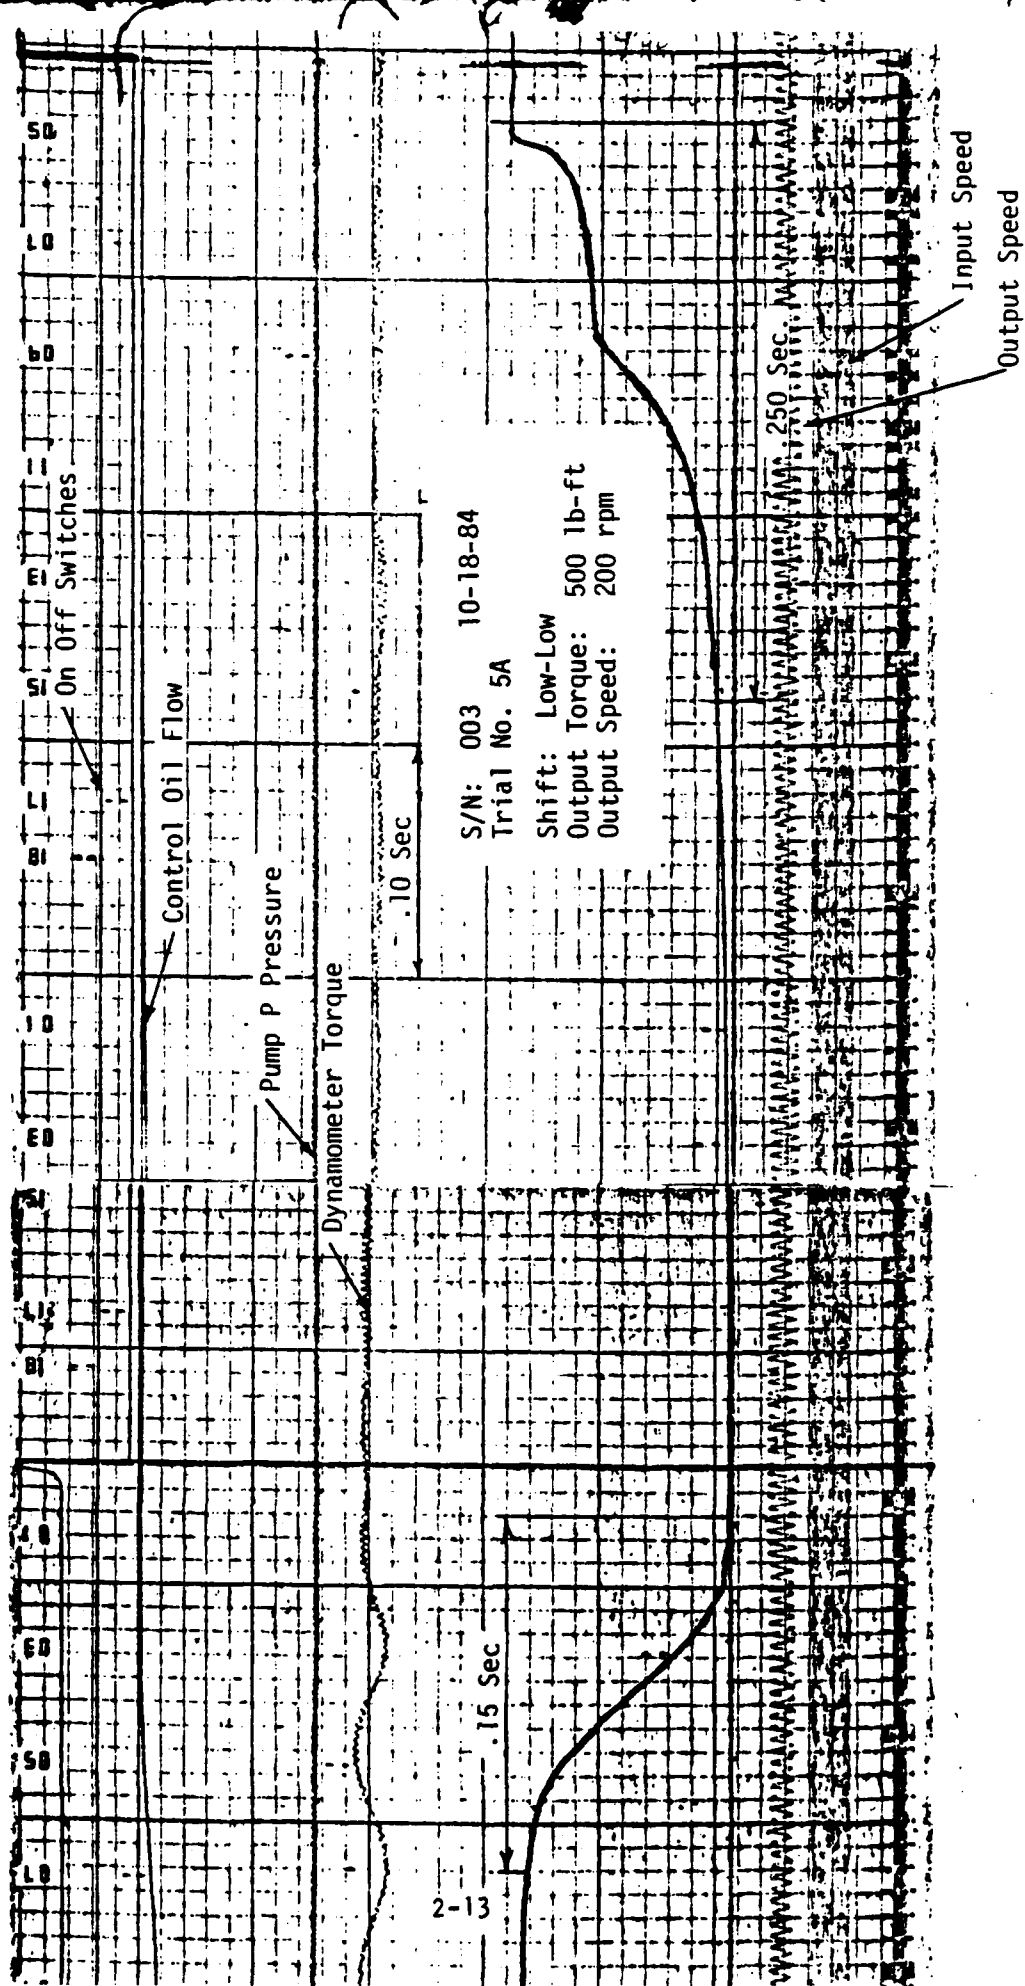 On Off Switches
Control Oil Flow
Pump P Pressure
Dynamometer Torque
.10 Sec
S/N: 003 10-18-84
Trial No. 5A
Shift: Low-Low
Output Torque: 500 lb-ft
Output Speed: 200 rpm
.250 Sec.
.15 Sec
Input Speed
Output Speed
2-13